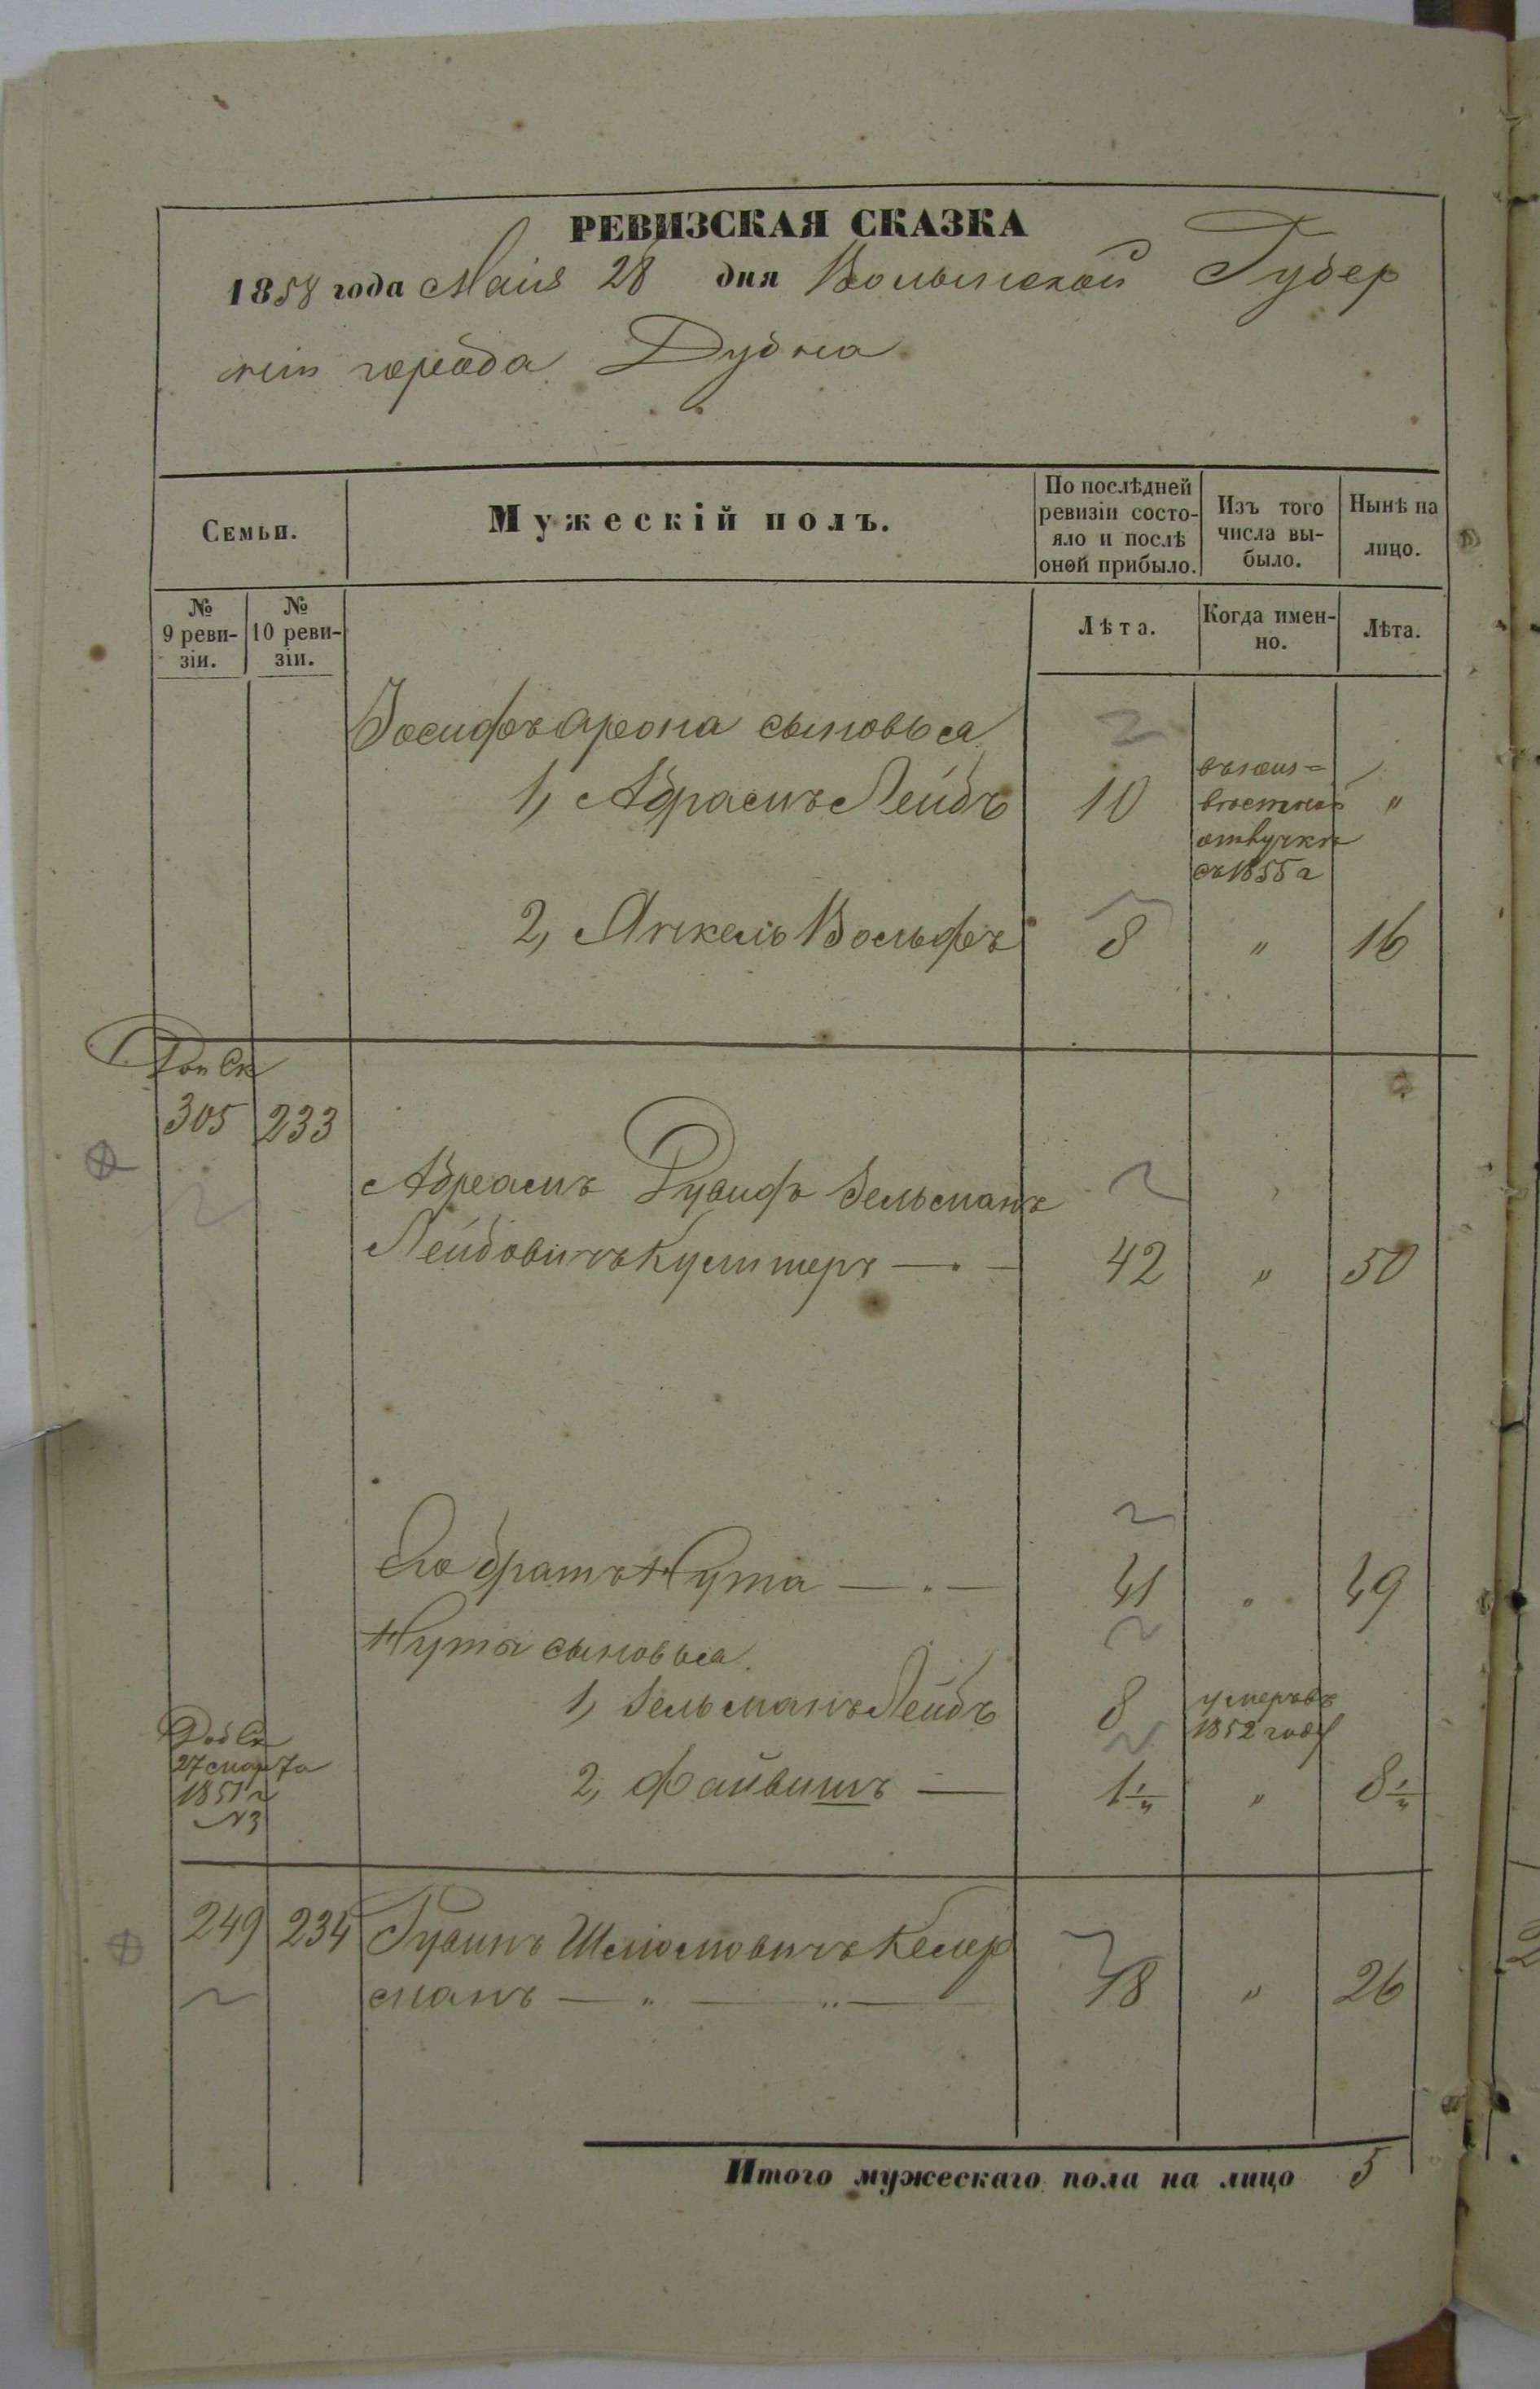 РЕВИЗСКАЯ СКАЗКА
1858 года Маія 28 дня Волынской Губер
ніи города Дубна
Семьи.
Мужескій полъ.
По послѣдней
ревизіи состо-
яло и послѣ
оной прибыло.
Изъ того
числа вы-
было.
Нынѣ на
лицо.
№
9 реви-
зіи.
№
10 реви-
зіи.
Лѣта.
Когда имен-
но.
Лѣта.
Іосифъ Арона сыновья
1, Абрамъ Лейбъ 10 "
въ неиз=
вѣстной
отлучкѣ
съ 1855 г
2, Янкель Вольфъ 8 " 16
Доп Ск
305 233
Абрамъ Рувифъ Зельманъ
Лейбовичъ — " — 42 " 50
Его братъ Нута — " — 41 " 49
Нута сыновья
1, Зельманъ Лейбъ 8 умеръ въ
1852 году
Доб Ск
27 марта
1851 г
№3
2, Файвишъ — 1 1/4 " 8 1/4
249 234 Рувинъ Шліомовичъ Келер
манъ — " — " — 18 " 26
Итого мужескаго пола на лицо 5